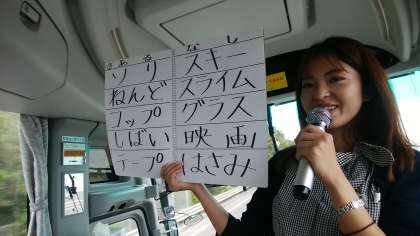 ある なし
ソリ スキー
ねんど スライム
コップ グラス
しばい 映画
テープ はさみ